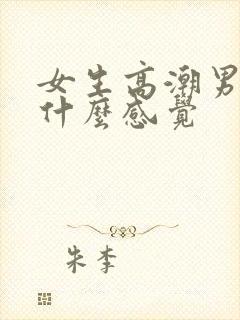 女生高潮男
什麼感覺
朱李